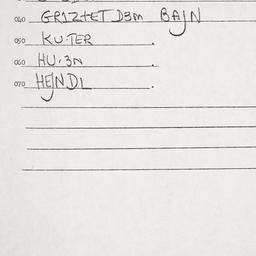 040 GR1Z+ET D3m BAJN
050 KU·TER .
060 HU·3N .
070 HEJNDL .